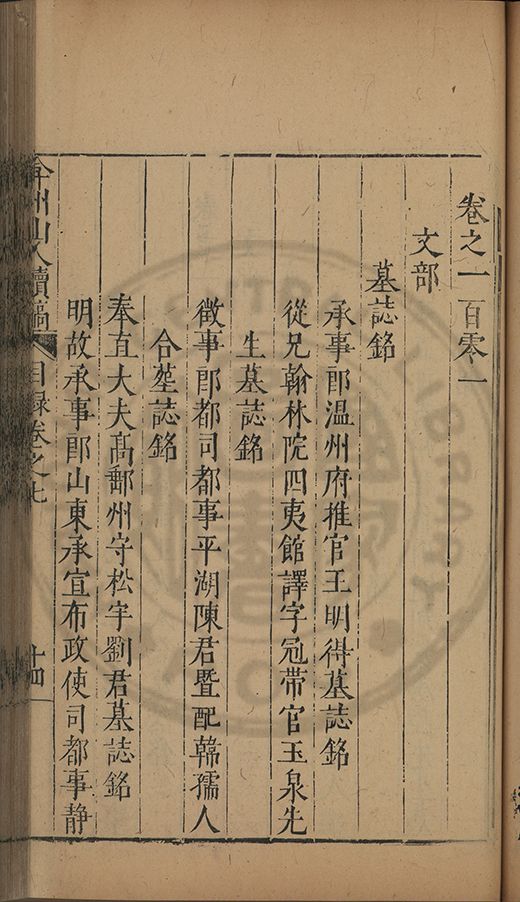 卷之一百零一
文部
墓誌銘
承事郎溫州府推官王明得墓誌銘
從兄翰林院四夷館譯字冠帶官玉泉先
生墓誌銘
徵事郎都司都事平湖陳君暨配韓孺人
合塟誌銘
奉直大夫高郵州守松宇劉君墓誌銘
明故承事郎山東承宣布政使司都事静
弇州山人續稿 目録卷之七 十四